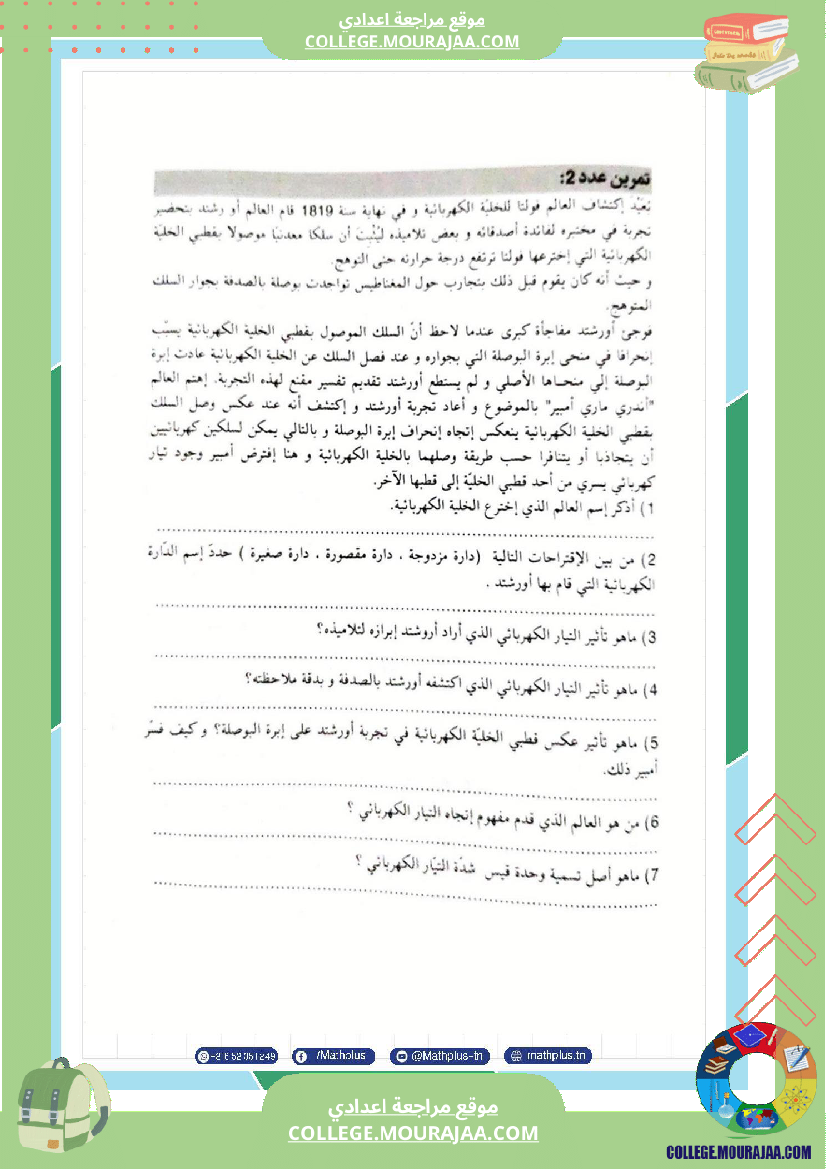 موقع مراجعة اعدادي
COLLEGE.MOURAJAA.COM
تمرين عدد 2:
بَعَيْد إكتشاف العالم فولتا للخليّة الكهربائية و في نهاية سنة 1819 قام العالم أو رشتد بتحضير
تجربة في مختبره لفائدة أصدقائه و بعض تلاميذه ليُثْبِتَ أن سلكا معدنيّا موصولا بقطبي الخليّة
الكهربائية التي إخترعها فولتا ترتفع درجة حرارته حتى التوهج.
و حيث أنه كان يقوم قبل ذلك بتجارب حول المغناطيس تواجدت بوصلة بالصدفة بجوار السلك
المتوهج.
فوجئ أورشتد مفاجأة كبرى عندما لاحظ أنّ السلك الموصول بقطبي الخلية الكهربائية يسبّب
إنحرافا في منحى إبرة البوصلة التي بجواره و عند فصل السلك عن الخلية الكهربائية عادت إبرة
البوصلة إلى منحاها الأصلي و لم يستطع أورشتد تقديم تفسير مقنع لهذه التجربة. إهتم العالم
"أندري ماري أمبير" بالموضوع و أعاد تجربة أورشتد و إكتشف أنه عند عكس وصل السلك
بقطبي الخلية الكهربائية ينعكس إتجاه إنحراف إبرة البوصلة و بالتالي يمكن لسلكين كهربائيين
أن يتجاذبا أو يتنافرا حسب طريقة وصلهما بالخلية الكهربائية و هنا إفترض أمبير وجود تيار
كهربائي يسري من أحد قطبي الخليّة إلى قطبها الآخر.
1) أذكر إسم العالم الذي إخترع الخلية الكهربائية.
2) من بين الإقتراحات التالية (دارة مزدوجة ، دارة مقصورة ، دارة صغيرة ) حددّ إسم الدّارة
الكهربائية التي قام بها أورشتد .
3) ماهو تأثير التيار الكهربائي الذي أراد أروشتد إبرازه لتلاميذه؟
4) ماهو تأثير التيار الكهربائي الذي اكتشفه أورشتد بالصدفة و بدقة ملاحظته؟
5) ماهو تأثير عكس قطبي الخليّة الكهربائية في تجربة أورشتد على إبرة البوصلة؟ و كيف فسّر
أمبير ذلك.
6) من هو العالم الذي قدم مفهوم إتجاه التيار الكهربائي ؟
7) ماهو أصل تسمية وحدة قيس شدّة التيّار الكهربائي ؟
/Mathplus
@Mathplus-tn
mathplus.tn
موقع مراجعة اعدادي
COLLEGE.MOURAJAA.COM
COLLEGE.MOURAJAA.COM